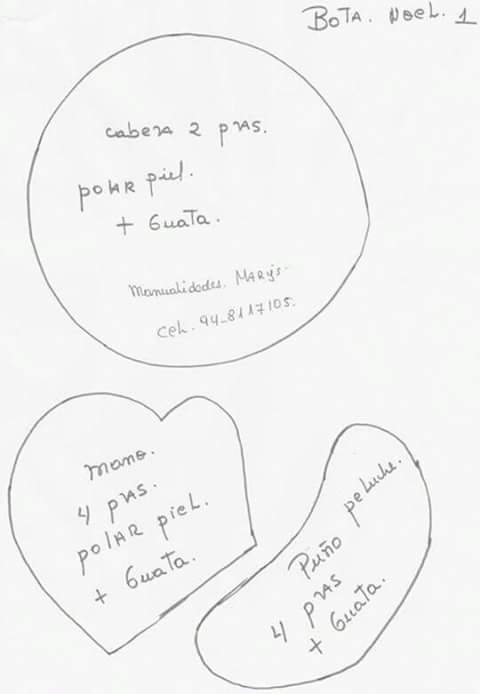 BOTA. NOEL. 1
cabeza 2 pzas.
polar piel.
+ Guata.
Manualidades. MARy's.
Cel. 94-8117105.
mano.
4 pzas.
polar piel.
+ Guata.
Puño peluche.
4 pzas
+ Guata.